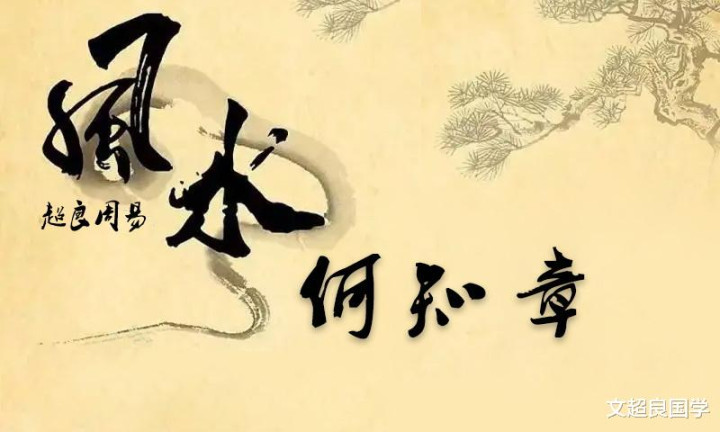 風水
超良周易
何知章
文超良国学